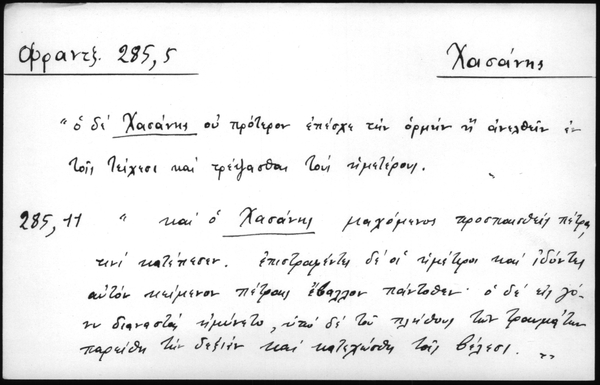 Φραντζ. 285,5
Χασάνης
"ὁ δέ Χασάνης οὐ πρότερον ἐπέσχε τήν ὁρμήν ἤ ἀνελθεῖν ἐν
τοῖς τείχεσι καί τρέψασθαι τούς ἡμετέρους.
285,11 " καί ὁ Χασάνης μαχόμενος προσπαισθείς πέτρᾳ
τινί κατέπεσεν. ἐπιστραφέντες δέ οἱ ἡμέτεροι καί ἰδόντες
αὐτόν κείμενον πέτραις ἔβαλλον πάντοθεν· ὁ δέ εἰς γό-
νυ διαναστάς ἠμύνετο, ὑπό δέ τοῦ πλήθους τῶν τραυμάτων
παρείθη τήν δεξιάν καί κατεχώσθη τοῖς βέλεσι. "